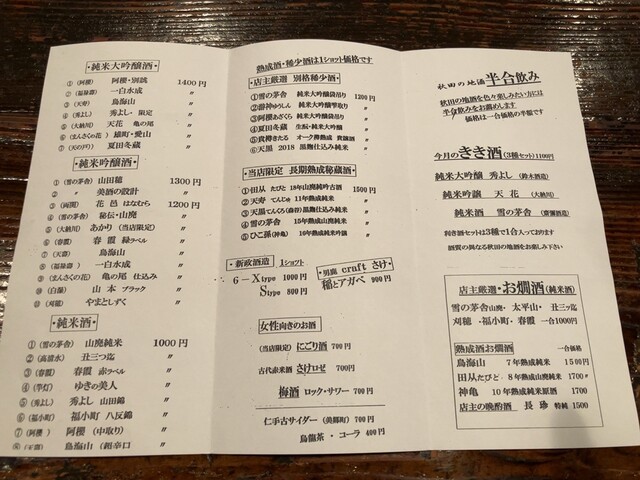 ・純米大吟醸酒・
①(阿櫻) 阿櫻・別誂 1400円
②(福禄寿) 一白水成 〃
③(天寿) 鳥海山 〃
④(秀よし) 秀よし・限定 〃
⑤(大納川) 天花 亀の尾 〃
⑥(まんさくの花) 雄町・愛山 〃
⑦(天の戸) 夏田冬蔵 〃
・純米吟醸酒・
①(雪の茅舎) 山田穂 1300円
②( 〃 ) 美酒の設計 〃
③(両関) 花邑 はなむら 1200円
④(雪の茅舎) 秘伝・山廃 〃
⑤(大納川) あかり(当店限定) 〃
⑥(春霞) 春霞 緑ラベル 〃
⑦(天寿) 鳥海山 〃
⑧(福禄寿) 一白水成 〃
⑨(まんさくの花) 亀の尾 仕込み 〃
⑩(白瀑) 山本 ブラック 〃
⑪(刈穂) やまとしずく 〃
・純米酒・
①(雪の茅舎) 山廃純米 1000円
②(高清水) 丑三つ迄 〃
③(春霞) 春霞 赤ラベル 〃
④(竿灯) ゆきの美人 〃
⑤(秀よし) 秀よし 山田錦 〃
⑥(福小町) 福小町 八反錦 〃
⑦(阿櫻) 阿櫻(中取り) 〃
⑧(天寿) 鳥海山(超辛口 〃
熟成酒・稀少酒は1ショット価格です
・店主厳選 別格稀少酒・
①雪の茅舎 純米大吟醸袋吊り 1200円
②游神ゆうしん 純米大吟醸雫取り 〃
③阿櫻あざくら 純米大吟醸袋吊り 〃
④夏田冬蔵 生酛・純米大吟醸 〃
⑤貴樽きたる オーク樽熟成 貴醸酒 〃
⑥天黒 2018 黒麹仕込み純米 〃
・当店限定 長期熟成秘蔵酒・
①田从 たびと 18年山廃純吟古酒 1500円
②天寿 てんじゅ 11年熟成純米 〃
③天黒てんくろ 黒麹仕込み純米 〃
④雪の茅舎 15年熟成山廃純米 〃
⑤ひこ孫(神亀) 10年熟成純米吟醸 〃
・新政酒造・ 1ショット
6－Xtype 1000円
Stype 800円
・男鹿 craft さけ・
稲とアガベ 900円
女性向きのお酒
(当店限定) にごり酒 700円
古代赤米酒 さけロゼ 700円
梅酒 ロック・サワー 700円
仁手古サイダー(美郷町) 700円
烏龍茶・コーラ 400円
秋田の地酒 半合飲み
秋田の地酒を色々楽しみたい方には
半合飲みをお薦めします
価格は一合価格の半額です
今月のきき酒(3種セット)1100円
純米大吟醸 秀よし (鈴木酒造)
純米吟醸 天花 (大納川)
純米酒 雪の茅舎 (齋彌酒造)
利き酒セットは3種で1合入っております
酒質の異なる秋田の地酒をお楽しみ下さい
店主厳選・お燗酒(純米酒)
雪の茅舎山廃・太平山・丑三ッ迄
刈穂・福小町・春霞 一合1000円
熟成酒お燗酒 一合価格
鳥海山 7年熟成純米 1500円
田从 たびと 8年熟成山廃純米 1700〃
神亀 10年熟成純米原酒 1700
店主の晩酌酒 長珍 特純 1500